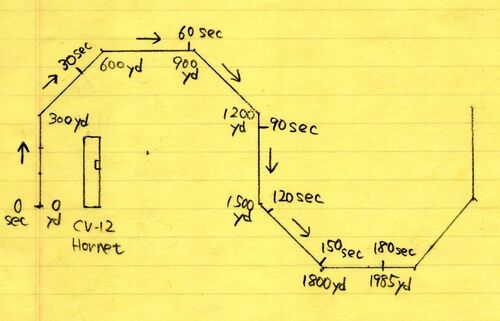 60 sec
30 sec
600 yd
900
yd
300 yd
1200
yd
90 sec
0
sec
0
yd
CV-12
Hornet
1500
yd
120 sec
150 sec
180 sec
1800 yd
1985 yd